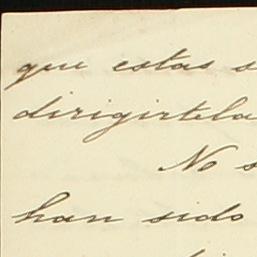 que estas s
dirigirtela
No s
han sido